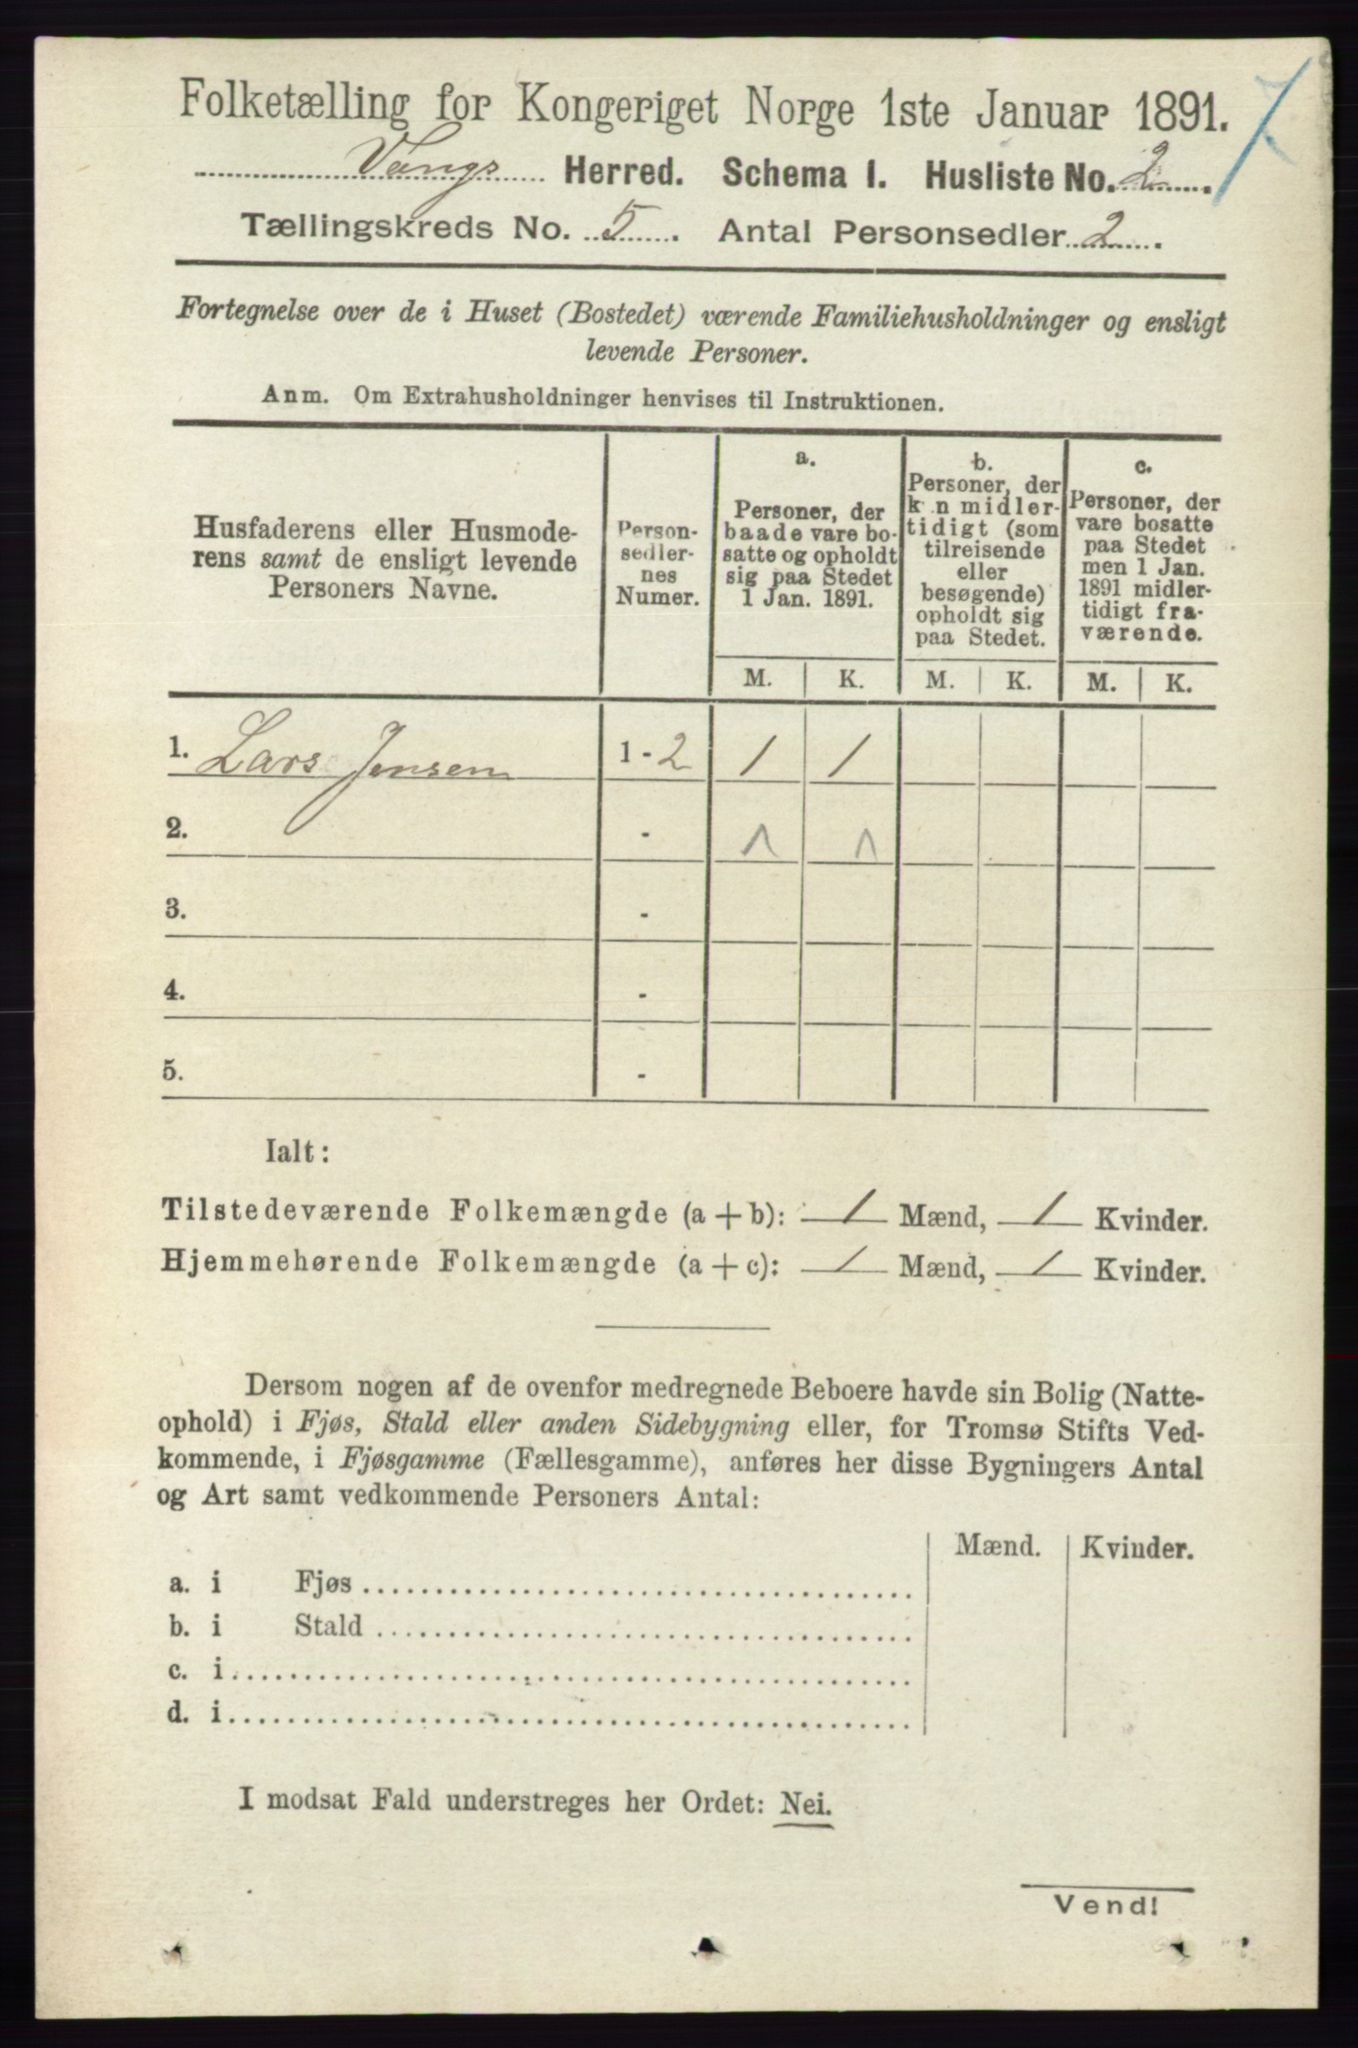 Folketælling for Kongeriget Norge 1ste Januar 1891.
7
Vangs Herred. Schema I. Husliste No. 2.
Tællingskreds No. 5. Antal Personsedler 2.
Fortegnelse over de i Huset (Bostedet) værende Familiehusholdninger og ensligt
levende Personer.
Anm. Om Extrahusholdninger henvises til Instruktionen.
Husfaderens eller Husmode-
rens samt de ensligt levende
Personers Navne.
Person-
sedler-
nes
Numer.
a.
Personer, der
baade vare bo-
satte og opholdt
sig paa Stedet
1 Jan. 1891.
b.
Personer, der
k n midler-
tidigt (som
tilreisende
eller
besøgende)
opholdt sig
paa Stedet.
c.
Personer, der
vare bosatte
paa Stedet
men 1 Jan.
1891 midler-
tidigt fra-
værende.
M. K. M. K. M. K.
1. Lars Jensen 1 - 2 1 1
2. -
3. -
4. -
5. -
Ialt:
Tilstedeværende Folkemængde (a + b): 1 Mænd, 1 Kvinder.
Hjemmehørende Folkemængde (a + c): 1 Mænd, 1 Kvinder.
Dersom nogen af de ovenfor medregnede Beboere havde sin Bolig (Natte-
ophold) i Fjøs, Stald eller anden Sidebygning eller, for Tromsø Stifts Ved-
kommende, i Fjøsgamme (Fællesgamme), anføres her disse Bygningers Antal
og Art samt vedkommende Personers Antal:
Mænd. Kvinder.
a. i Fjøs
b. i Stald
c. i
d. i
I modsat Fald understreges her Ordet: Nei.
Vend!